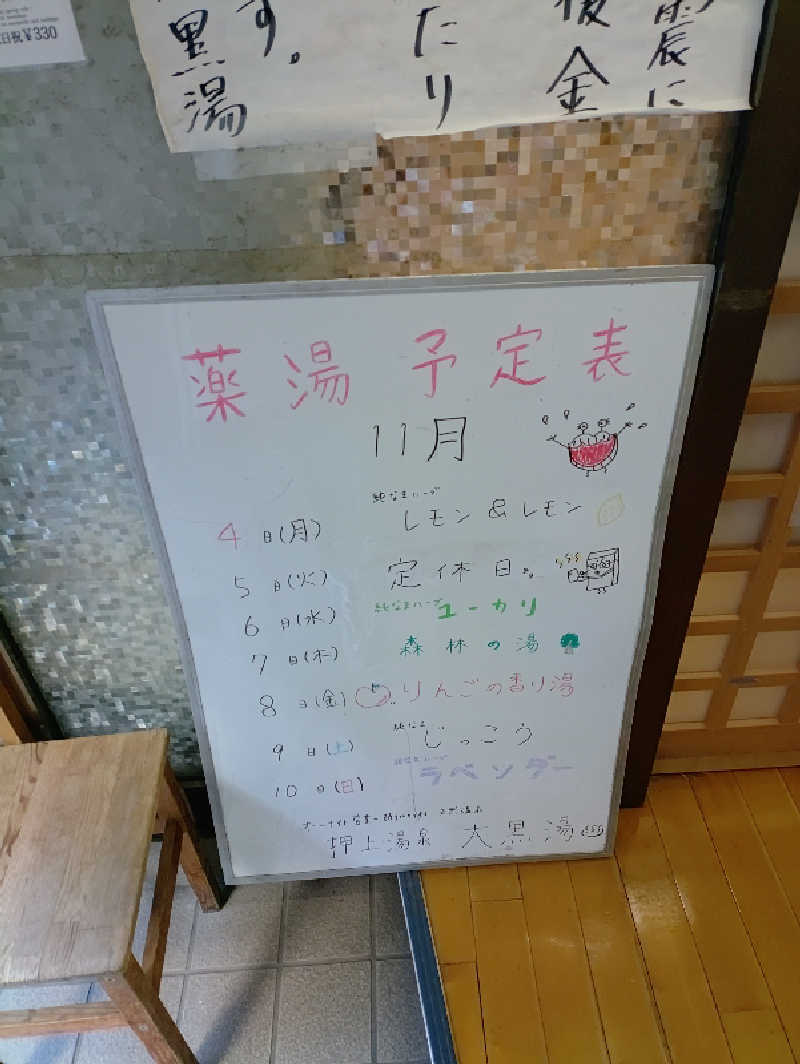 日祝¥330
震に
後金
たり
す。
黒湯
薬湯予定表
11月
4日(月) 純なまハーブ レモン&レモン
5日(火) 定休日。
6日(水) 純なまハーブ ユーカリ
7日(木) 森林の湯
8日(金) りんごの香り湯
9日(土) 純なま じっこう
10日(日) 純なまハーブ ラベンダー
押上温泉 大黒湯